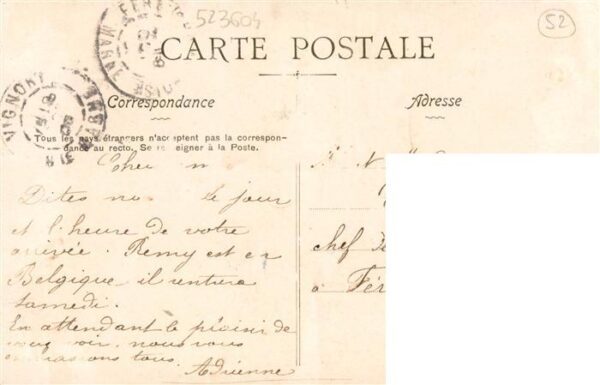 523604
52
CARTE POSTALE
Correspondance
Adresse
Tous les pays étrangers n'acceptent pas la correspon-
dance au recto. Se renseigner à la Poste.
VIGNORY
MARNE
Dites le jour
et l'heure de votre
arrivée. Remy est en
Belgique il rentrera
samedi.
En attendant le plaisir de
vous voir, nous vous
embrassons tous. Adrienne
chef de
à Fér